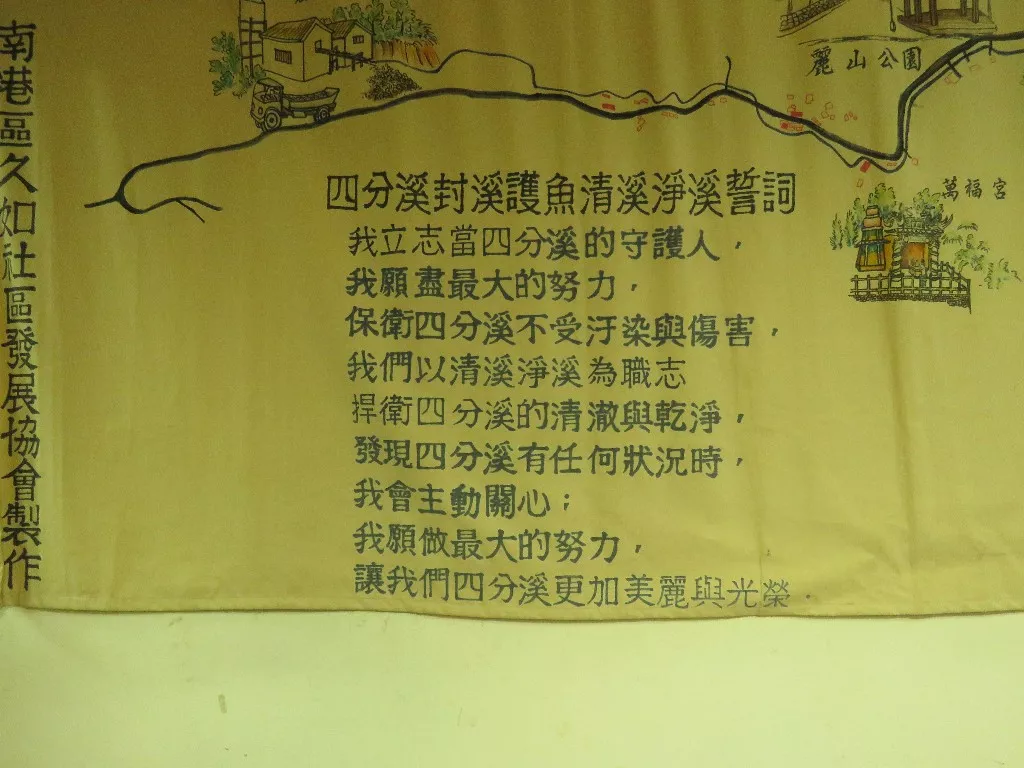 南港區久如社區發展協會製作
麗山公園
萬福宮
四分溪封溪護魚清溪淨溪誓詞
我立志當四分溪的守護人，
我願盡最大的努力，
保衛四分溪不受汙染與傷害，
我們以清溪淨溪為職志
捍衛四分溪的清澈與乾淨，
發現四分溪有任何狀況時，
我會主動關心；
我願做最大的努力，
讓我們四分溪更加美麗與光榮.